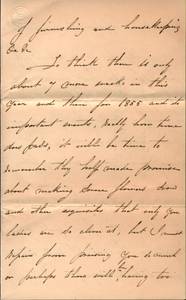 of furnishing and housekeeping
I think there is only
about 7 more weeks in this
year and then for 1885 and its
important events, really how time
does pass, it will be time to
remember they half made promises
about making some flowers
and other requisites that only you
ladies are so clever at, but I must
refrain from praising you so much
or perhaps there will be having too